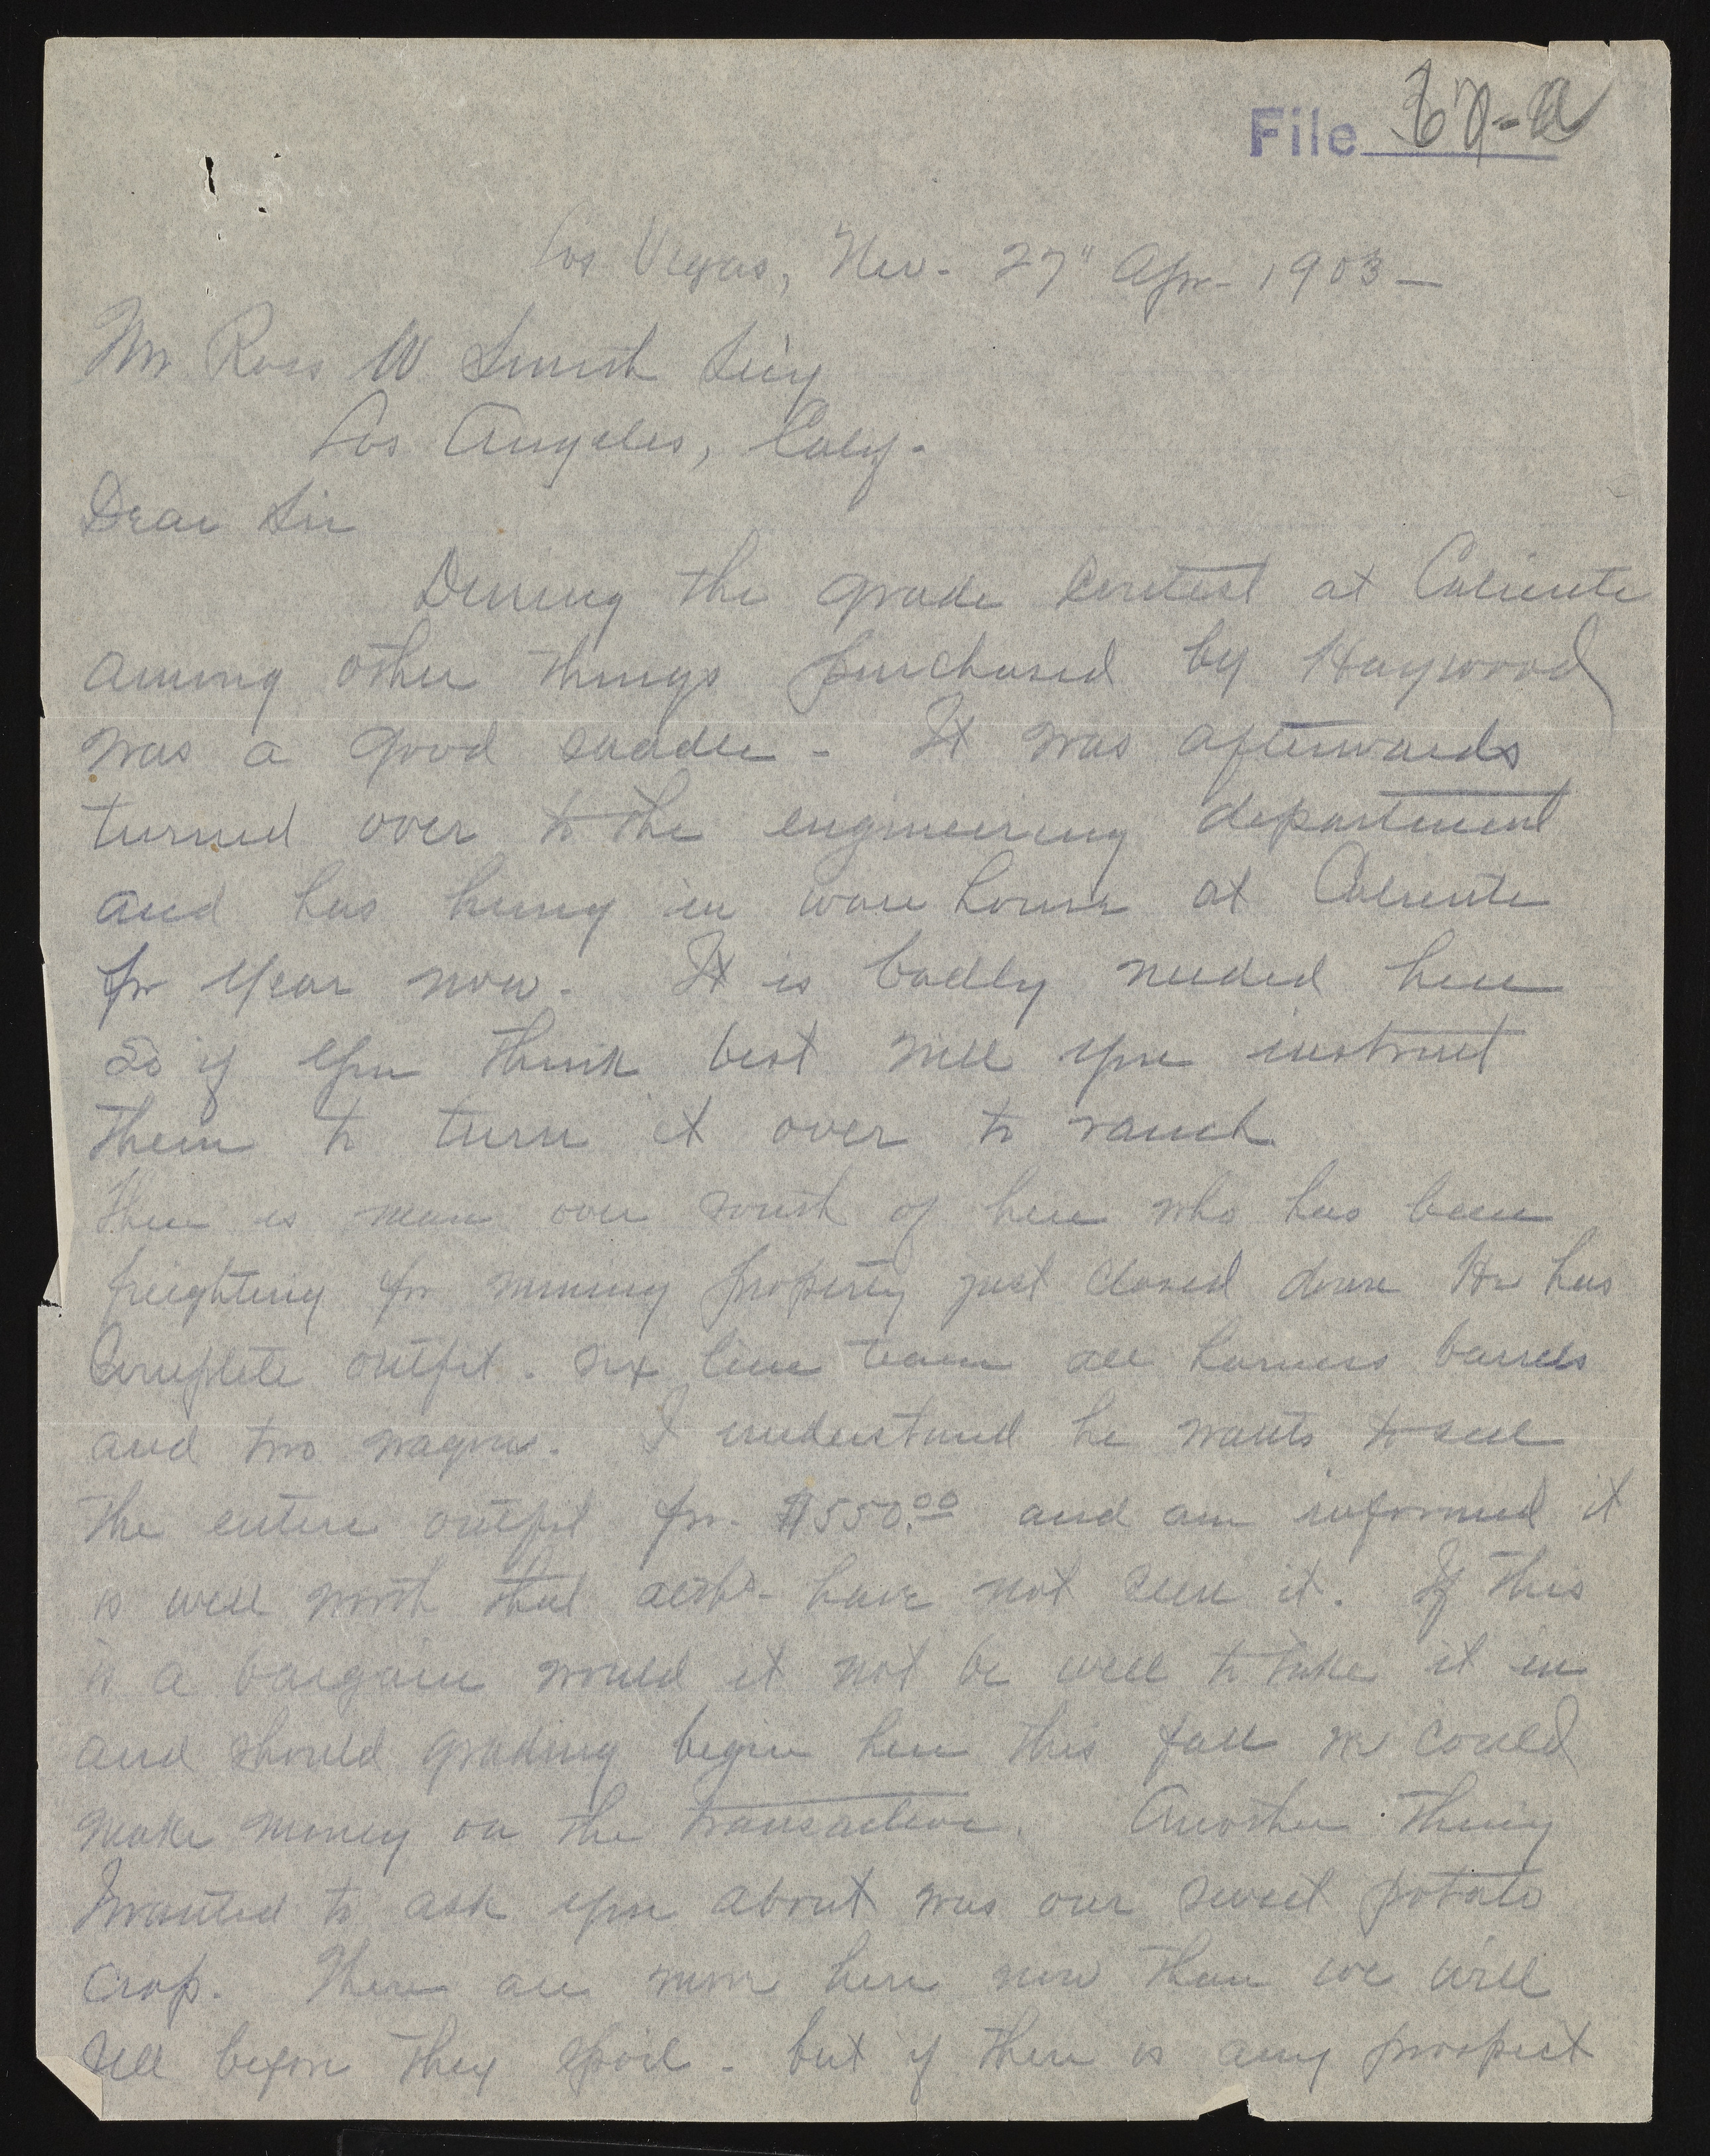 File 67-a
Los Vegas, Nev. 27" Apr. 1903 —
Mr Ross W Smith Secy
Los Angeles, Caly.
Dear Sir
During the grade contest at Caliente
among other things purchased by Haywood
was a good saddle - It was afterwards
turned over to the engineering department
and has hung in ware house at Caliente
for year now. It is badly needed here
So if you think best will you instruct
them to turn it over to ranch
There is man over south of here who has been
freighting for mining property just closed down He has
Complete outfit. six line team all harness barrels
and two wagons. I understand he wants to sell
the entire outfit for $550.00 and am informed it
is well worth that altho - have not seen it. If this
is a bargain would it not be well to take it in
and should grading begin here this fall we could
make money on the transaction. Another thing
I wanted to ask you about was our sweet potato
crop. There are more here now than we will
sell before they spoil - but if there is any prospect